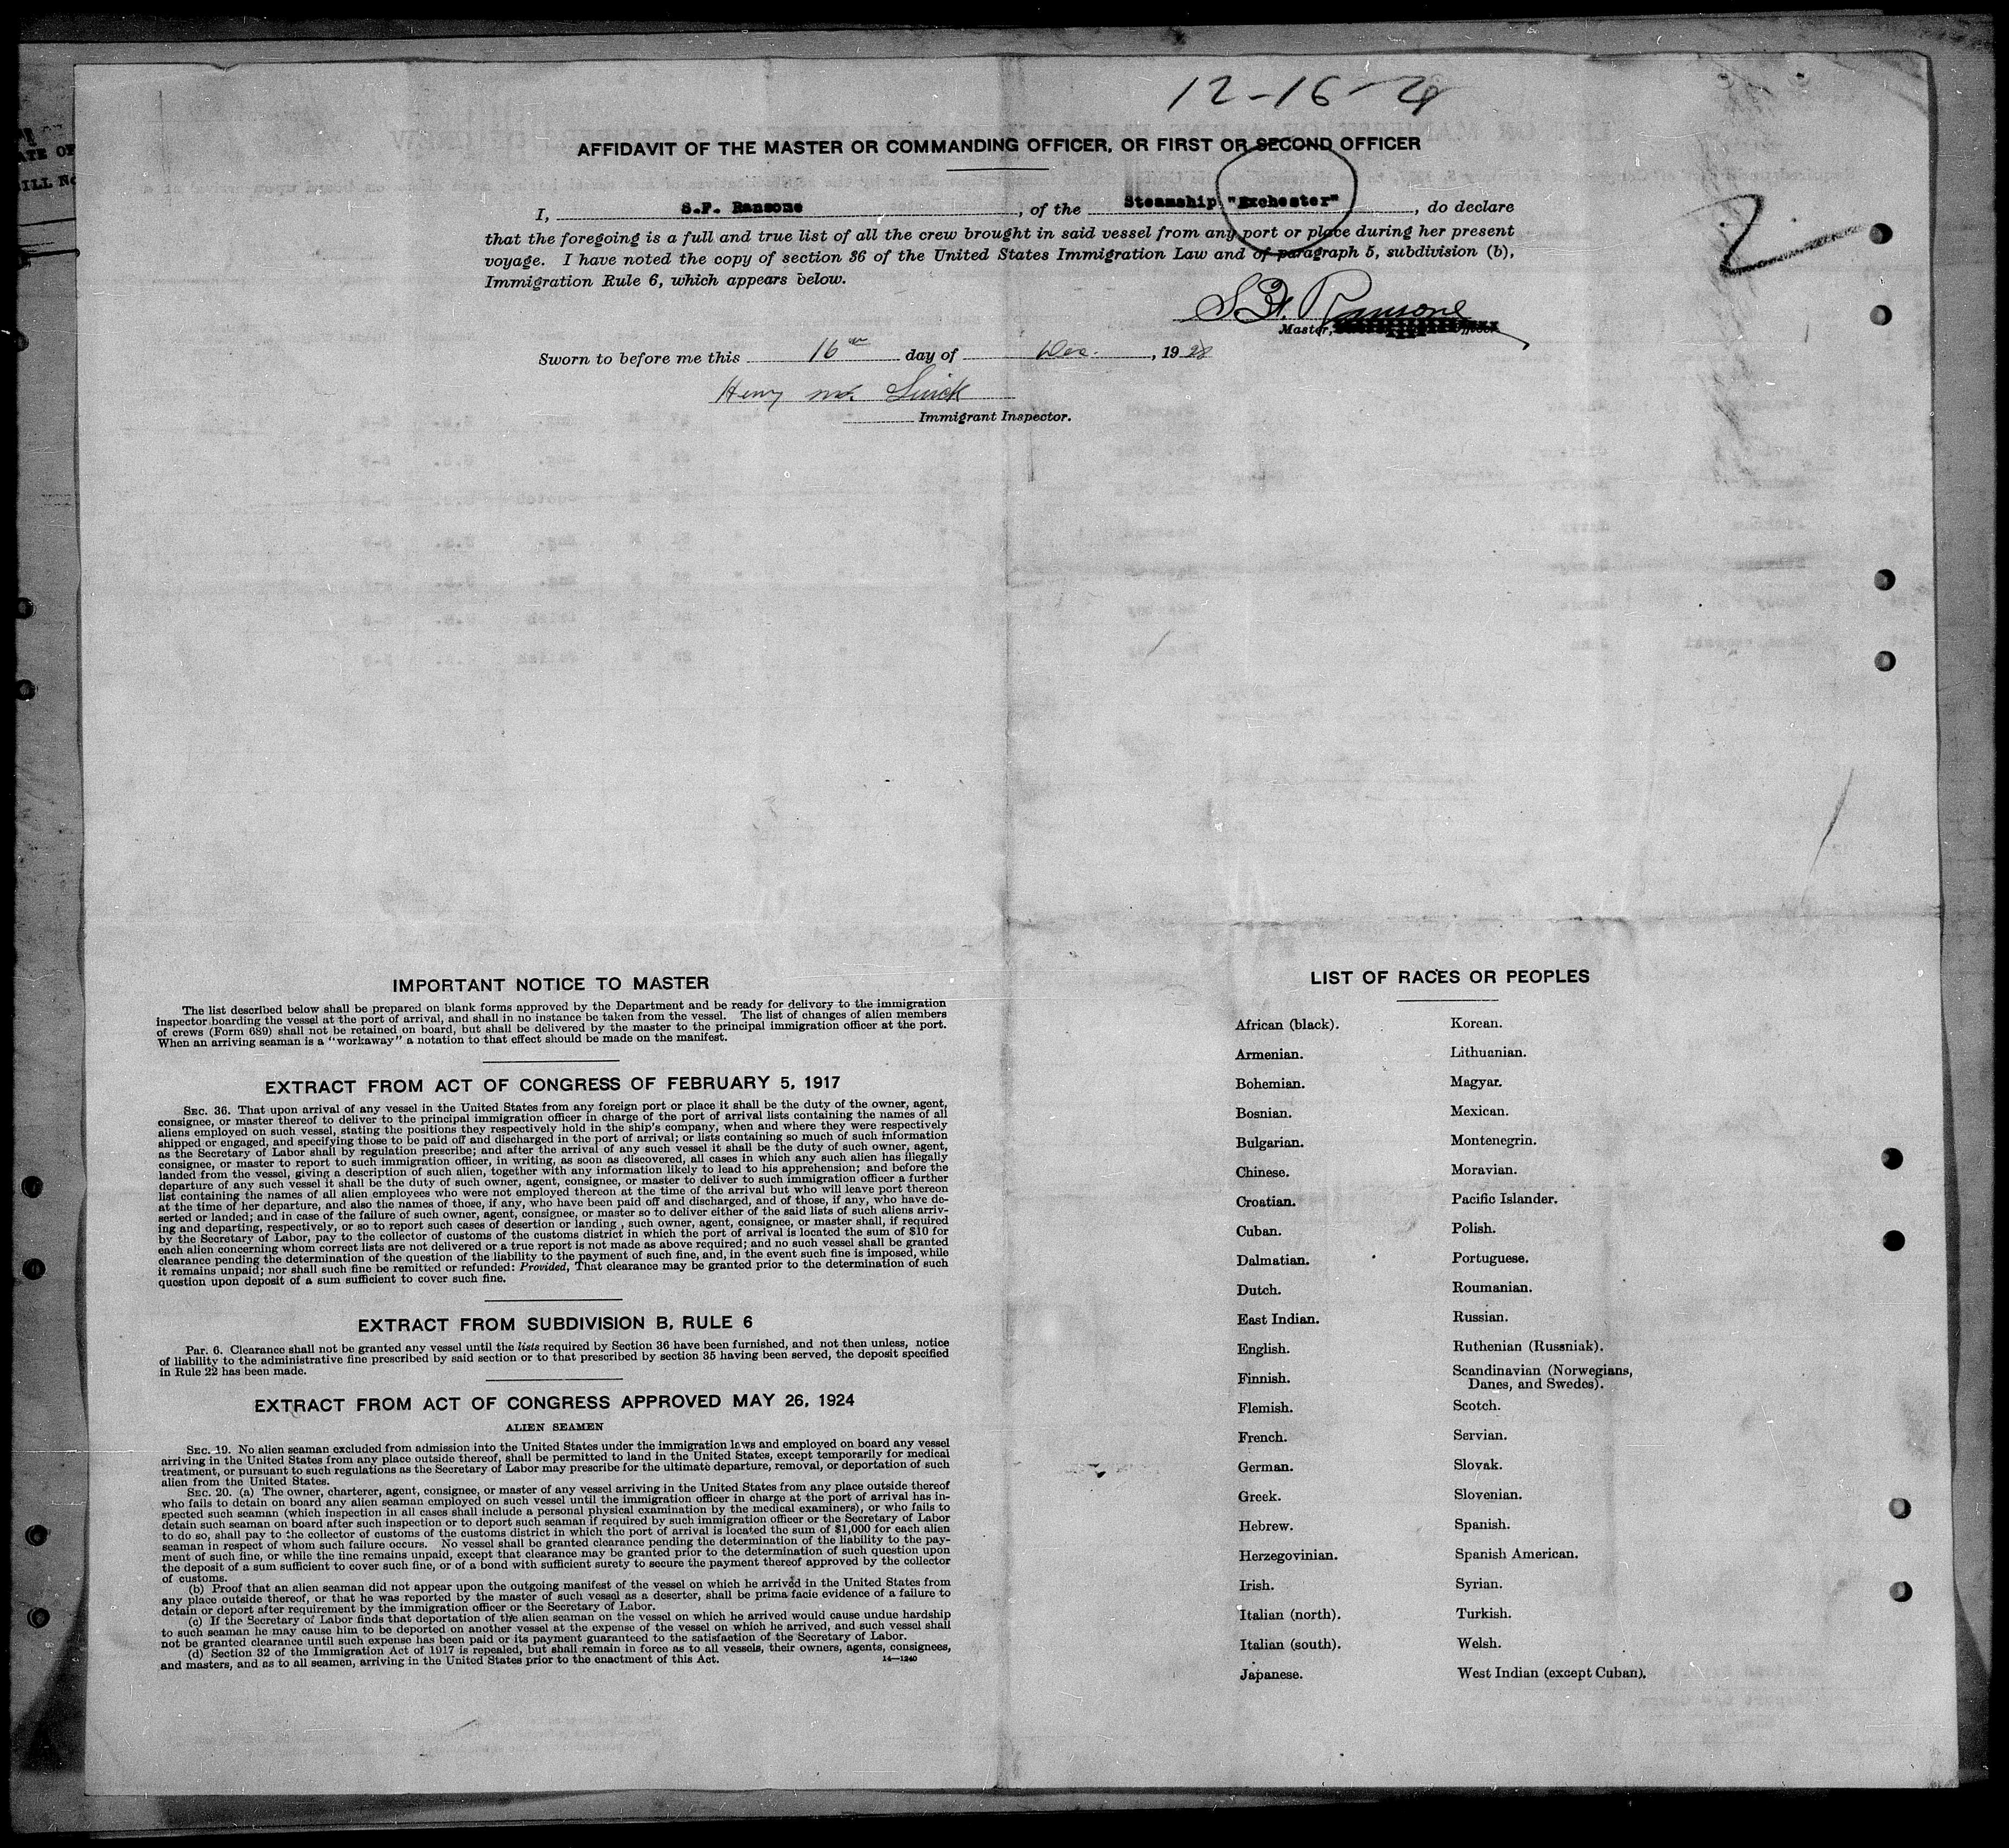 12-16-28
AFFIDAVIT OF THE MASTER OR COMMANDING OFFICER, OR FIRST OR SECOND OFFICER
I, S.F. Ransone, of the Steamship "Exchester", do declare
that the foregoing is a full and true list of all the crew brought in said vessel from any port or place during her present
voyage. I have noted the copy of section 36 of the United States Immigration Law and of paragraph 5, subdivision (b),
Immigration Rule 6, which appears below.
2
Ransone
Master,
Sworn to before me this 16th day of Dec., 1928
Henry
Immigrant Inspector.
ATE OF
ILL No
IMPORTANT NOTICE TO MASTER
The list described below shall be prepared on blank forms approved by the Department and be ready for delivery to the immigration
inspector boarding the vessel at the port of arrival, and shall in no instance be taken from the vessel. The list of changes of alien members
of crews (Form 689) shall not be retained on board, but shall be delivered by the master to the principal immigration officer at the port.
When an arriving seaman is a "workaway" a notation to that effect should be made on the manifest.
EXTRACT FROM ACT OF CONGRESS OF FEBRUARY 5, 1917
SEC. 36. That upon arrival of any vessel in the United States from any foreign port or place it shall be the duty of the owner, agent,
consignee, or master thereof to deliver to the principal immigration officer in charge of the port of arrival lists containing the names of all
aliens employed on such vessel, stating the positions they respectively hold in the ship's company, when and where they were respectively
shipped or engaged, and specifying those to be paid off and discharged in the port of arrival; or lists containing so much of such information
as the Secretary of Labor shall by regulation prescribe; and after the arrival of any such vessel it shall be the duty of such owner, agent,
consignee, or master to report to such immigration officer, in writing, as soon as discovered, all cases in which any such alien has illegally
landed from the vessel, giving a description of such alien, together with any information likely to lead to his apprehension; and before the
departure of any such vessel it shall be the duty of such owner, agent, consignee, or master to deliver to such immigration officer a further
list containing the names of all alien employees who were not employed thereon at the time of the arrival but who will leave port thereon
at the time of her departure, and also the names of those, if any, who have been paid off and discharged, and of those, if any, who have de-
serted or landed; and in case of the failure of such owner, agent, consignee, or master so to deliver either of the said lists of such aliens arriv-
ing and departing, respectively, or so to report such cases of desertion or landing, such owner, agent, consignee, or master shall, if required
by the Secretary of Labor, pay to the collector of customs of the customs district in which the port of arrival is located the sum of $10 for
each alien concerning whom correct lists are not delivered or a true report is not made as above required; and no such vessel shall be granted
clearance pending the determination of the question of the liability to the payment of such fine, and, in the event such fine is imposed, while
it remains unpaid; nor shall such fine be remitted or refunded: Provided, That clearance may be granted prior to the determination of such
question upon deposit of a sum sufficient to cover such fine.
EXTRACT FROM SUBDIVISION B, RULE 6
Par. 6. Clearance shall not be granted any vessel until the lists required by Section 36 have been furnished, and not then unless, notice
of liability to the administrative fine prescribed by said section or to that prescribed by section 35 having been served, the deposit specified
in Rule 22 has been made.
EXTRACT FROM ACT OF CONGRESS APPROVED MAY 26, 1924
ALIEN SEAMEN
SEC. 19. No alien seaman excluded from admission into the United States under the immigration laws and employed on board any vessel
arriving in the United States from any place outside thereof, shall be permitted to land in the United States, except temporarily for medical
treatment, or pursuant to such regulations as the Secretary of Labor may prescribe for the ultimate departure, removal, or deportation of such
alien from the United States.
SEC. 20. (a) The owner, charterer, agent, consignee, or master of any vessel arriving in the United States from any place outside thereof
who fails to detain on board any alien seaman employed on such vessel until the immigration officer in charge at the port of arrival has in-
spected such seaman (which inspection in all cases shall include a personal physical examination by the medical examiners), or who fails to
detain such seaman on board after such inspection or to deport such seaman if required by such immigration officer or the Secretary of Labor
to do so, shall pay to the collector of customs of the customs district in which the port of arrival is located the sum of $1,000 for each alien
seaman in respect of whom such failure occurs. No vessel shall be granted clearance pending the determination of the liability to the pay-
ment of such fine, or while the fine remains unpaid, except that clearance may be granted prior to the determination of such question upon
the deposit of a sum sufficient to cover such fine, or of a bond with sufficient surety to secure the payment thereof approved by the collector
of customs.
(b) Proof that an alien seaman did not appear upon the outgoing manifest of the vessel on which he arrived in the United States from
any place outside thereof, or that he was reported by the master of such vessel as a deserter, shall be prima facie evidence of a failure to
detain or deport after requirement by the immigration officer or the Secretary of Labor.
(c) If the Secretary of Labor finds that deportation of the alien seaman on the vessel on which he arrived would cause undue hardship
to such seaman he may cause him to be deported on another vessel at the expense of the vessel on which he arrived, and such vessel shall
not be granted clearance until such expense has been paid or its payment guaranteed to the satisfaction of the Secretary of Labor.
(d) Section 32 of the Immigration Act of 1917 is repealed, but shall remain in force as to all vessels, their owners, agents, consignees,
and masters, and as to all seamen, arriving in the United States prior to the enactment of this Act.
14—1240
LIST OF RACES OR PEOPLES
African (black).
Armenian.
Bohemian.
Bosnian.
Bulgarian.
Chinese.
Croatian.
Cuban.
Dalmatian.
Dutch.
East Indian.
English.
Finnish.
Flemish.
French.
German.
Greek.
Hebrew.
Herzegovinian.
Irish.
Italian (north).
Italian (south).
Japanese.
Korean.
Lithuanian.
Magyar.
Mexican.
Montenegrin.
Moravian.
Pacific Islander.
Polish.
Portuguese.
Roumanian.
Russian.
Ruthenian (Russniak).
Scandinavian (Norwegians,
Danes, and Swedes).
Scotch.
Servian.
Slovak.
Slovenian.
Spanish.
Spanish American.
Syrian.
Turkish.
Welsh.
West Indian (except Cuban).